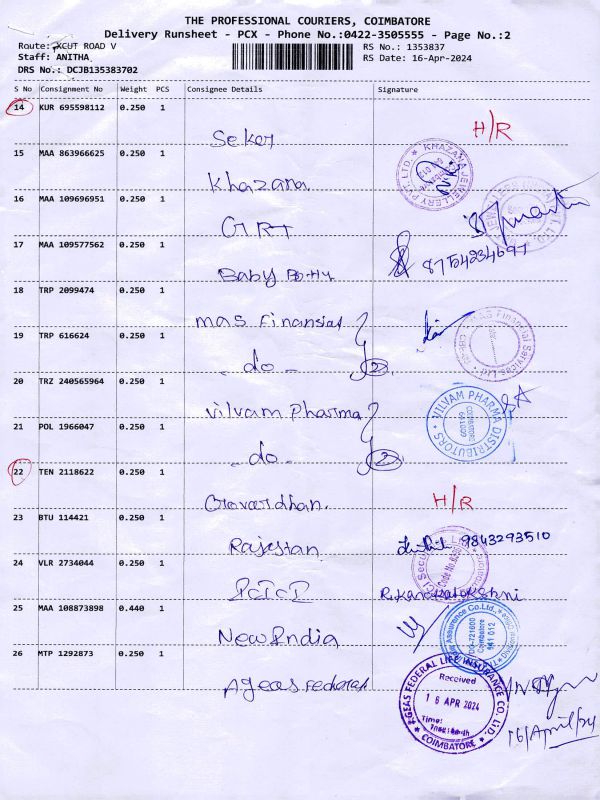 THE PROFESSIONAL COURIERS, COIMBATORE
Delivery Runsheet - PCX - Phone No.:0422-3505555 - Page No.:2
Route: XCUT ROAD V
RS No.: 1353837
Staff: ANITHA
RS Date: 16-Apr-2024
DRS No.: DCJB135383702
S No Consignment No Weight PCS Consignee Details Signature
14 KUR 695598112 0.250 1 Seker H/R
15 MAA 863966625 0.250 1 Khazana
KHAZANA JEWELLERY PVT. LTD.
16 MAA 109696951 0.250 1 GRT
17 MAA 109577562 0.250 1 Baby 8754234697
18 TRP 2099474 0.250 1 mas Finansial
MAS Financial Services Ltd
19 TRP 616624 0.250 1 -do- 2
20 TRZ 240565964 0.250 1 Vilvam Pharma
VILVAM PHARMA DISTRIBUTORS
21 POL 1966047 0.250 1 -do- 2
22 TEN 2118622 0.250 1 Govardhan. H/R
23 BTU 114421 0.250 1 Rajestan 9843293510
24 VLR 2734044 0.250 1
25 MAA 108873898 0.440 1 New India
Assurance Co.Ltd.,
721600
Coimbatore
641 012
26 MTP 1292873 0.250 1 Ageas Federal
AGEAS FEDERAL LIFE INSURANCE CO. LTD.
Received
16 APR 2024
Time:
COIMBATORE
16/April/24